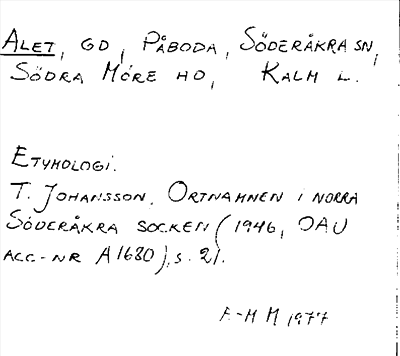 ALET, GD, PÅBODA, SÖDERÅKRA SN,
SÖDRA MÖRE HD, KALM L.
ETYMOLOGI.
T. JOHANSSON, ORTNAMNEN I NORRA
SÖDERÅKRA SOCKEN (1946, OAU
ACC-NR A1680), s. 21.
A-M M 1977